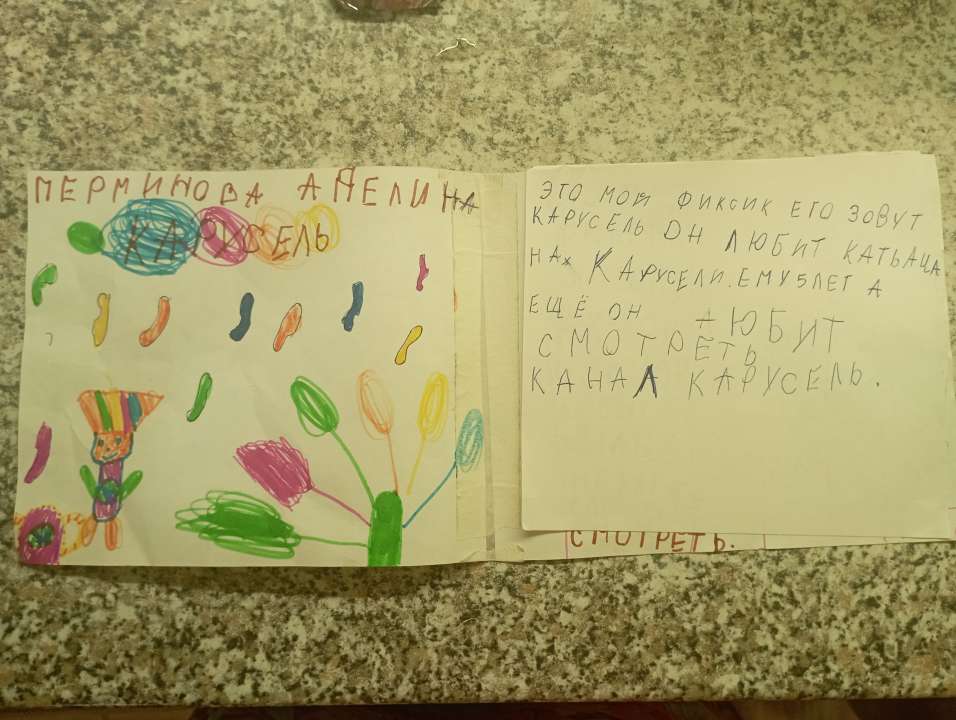 ПЕРМИНОВА АДЕЛИНА
КАРУСЕЛЬ
ЭТО МОЙ ФИКСИК ЕГО ЗОВУТ
КАРУСЕЛЬ ОН ЛЮБИТ КАТЬАЦА
НА КАРУСЕЛИ. ЕМУ 5 ЛЕТ А
ЕЩЁ ОН ЛЮБИТ
СМОТРЕТЬ
КАНАЛ КАРУСЕЛЬ.
СМОТРЕТЬ.